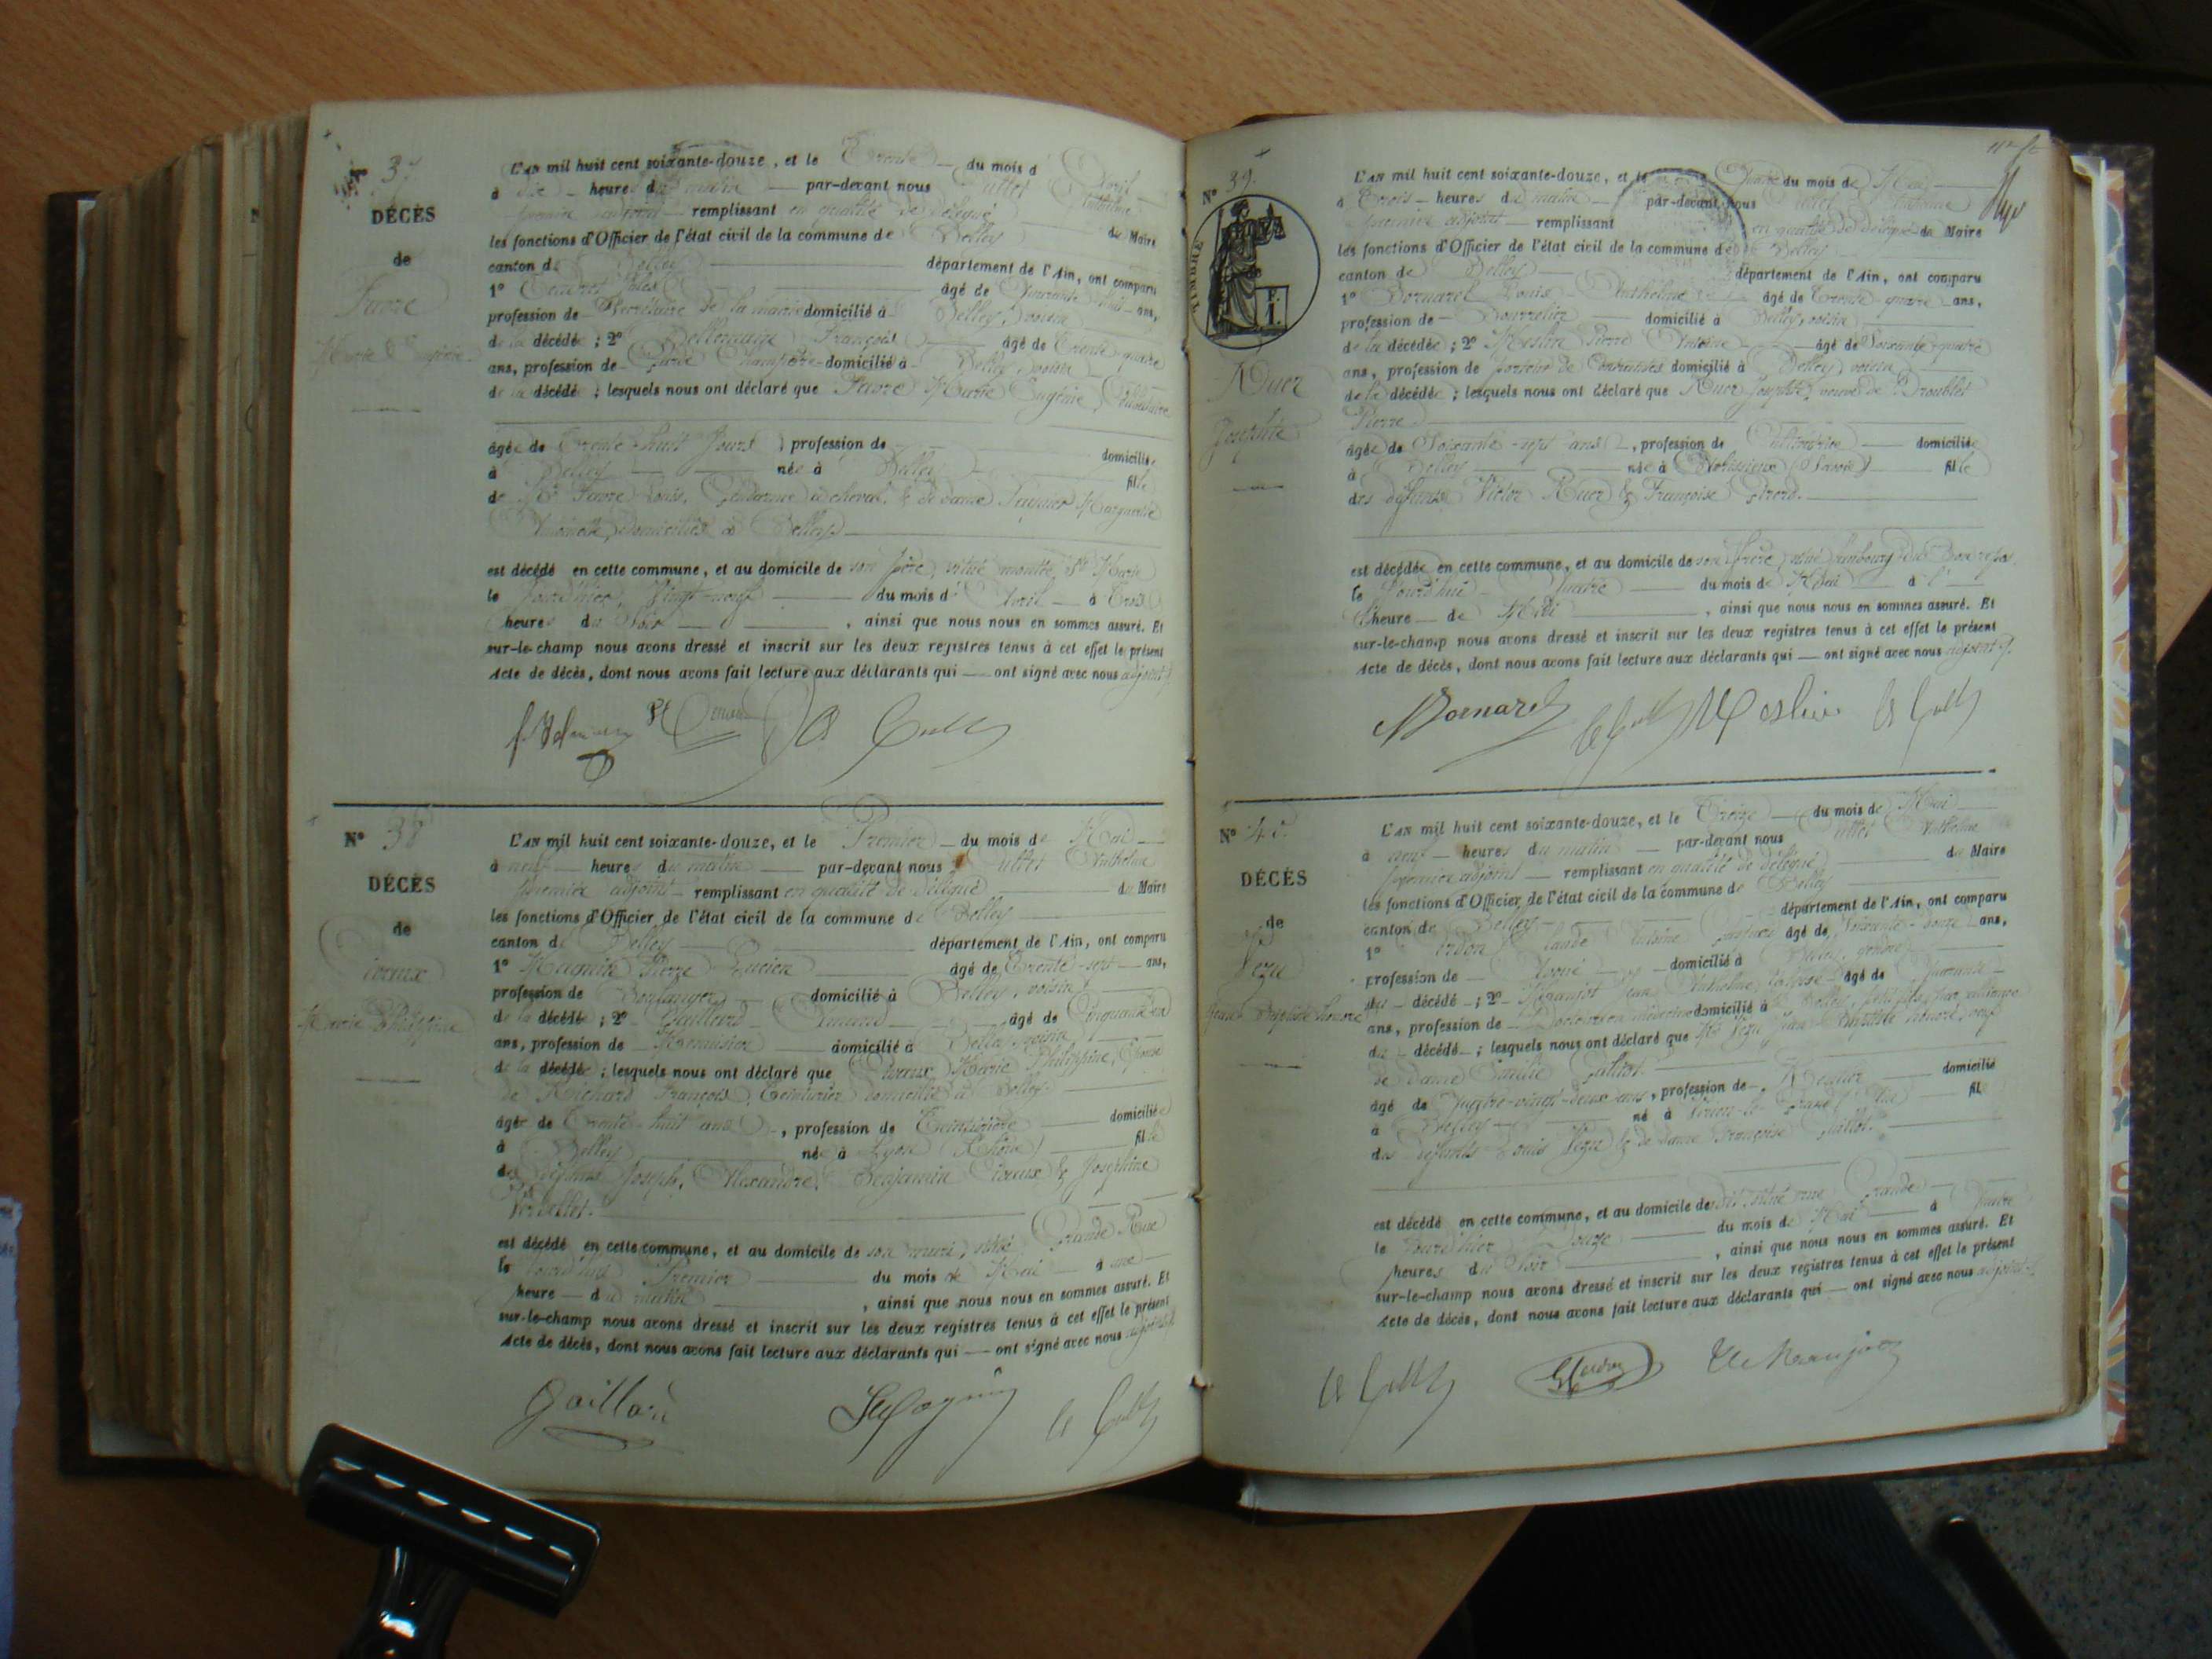 N° 37
DÉCÈS
de
Favre
Marie Eugénie
L'AN mil huit cent soixante-douze, et le Trente du mois d'Avril
à dix heures du matin par-devant nous Anthelme
premier adjoint remplissant en qualité de délégué du Maire
les fonctions d'Officier de l'état civil de la commune de Belley
canton de Belley département de l'Ain, ont comparu
1° Jules âgé de Quarante ans,
profession de Secrétaire de la mairie domicilié à Belley, voisin
de la décédée ; 2° François âgé de Trente-quatre
ans, profession de Garde Champêtre domicilié à Belley, voisin
de la décédée ; lesquels nous ont déclaré que Favre Marie Eugénie, Célibataire
âgée de Trente-huit Jours, profession de domiciliée
à Belley née à Belley fille
de Mr Favre Louis, Gendarme à cheval, & de dame Marguerite
domiciliés à Belley
est décédée en cette commune, et au domicile de son père, situé montée Ste Marie
le Jour d'hier, Vingt-neuf du mois d'Avril à Trois
heures du Soir, ainsi que nous nous en sommes assuré. Et
sur-le-champ nous avons dressé et inscrit sur les deux registres tenus à cet effet le présent
Acte de décès, dont nous avons fait lecture aux déclarants qui ont signé avec nous adjoint
N° 38
DÉCÈS
de
Civeaux
Marie Philippine
L'AN mil huit cent soixante-douze, et le Premier du mois de Mai
à neuf heures du matin par-devant nous Anthelme
premier adjoint remplissant en qualité de délégué du Maire
les fonctions d'Officier de l'état civil de la commune de Belley
canton de Belley département de l'Ain, ont comparu
1° Magnin Pierre Lucien âgé de Trente-sept ans,
profession de Boulanger domicilié à Belley, voisin
de la décédée ; 2° Gaillard âgé de Cinquante
ans, profession de Menuisier domicilié à Belley, voisin
de la décédée ; lesquels nous ont déclaré que Civeaux Marie Philippine, Epouse
de Richard François, Teinturier domicilié à Belley
âgée de Trente-huit ans, profession de Teinturière domiciliée
à Belley née à Lyon (Rhône) fille
des défunts Joseph, Alexandre, Benjamin Civeaux & Joséphine
est décédée en cette commune, et au domicile de son mari, situé Grande Rue
le Jourd'hui Premier du mois de Mai à une
heure du matin, ainsi que nous nous en sommes assuré. Et
sur-le-champ nous avons dressé et inscrit sur les deux registres tenus à cet effet le présent
Acte de décès, dont nous avons fait lecture aux déclarants qui ont signé avec nous adjoint
Gaillard
N° 39.
TIMBRE
Ruer
Josephte
L'AN mil huit cent soixante-douze, et le Quatre du mois de Mai
à Trois heures du matin par-devant nous
premier adjoint remplissant en qualité de délégué du Maire
les fonctions d'Officier de l'état civil de la commune de Belley
canton de Belley département de l'Ain, ont comparu
1° Bornarel Louis Anthelme âgé de Trente-quatre ans,
profession de Bourrelier domicilié à Belley, voisin
de la décédée ; 2° Meslin Pierre Antoine âgé de Soixante-quatre
ans, profession de domicilié à Belley, voisin
de la décédée ; lesquels nous ont déclaré que Ruer Josephte, veuve de
Pierre
âgée de Soixante-sept ans, profession de Cultivatrice domiciliée
à Belley née à (Savoie) fille
des défunts Victor Ruer & Françoise
est décédée en cette commune, et au domicile de son frère, situé Faubourg du Bon repos
le Jourd'hui Quatre du mois de Mai à l'
heure de Midi, ainsi que nous nous en sommes assuré. Et
sur-le-champ nous avons dressé et inscrit sur les deux registres tenus à cet effet le présent
Acte de décès, dont nous avons fait lecture aux déclarants qui ont signé avec nous adjoint
Bornarel Meslin
N° 40
DÉCÈS
de
Vezu
Jean Baptiste Honoré
L'AN mil huit cent soixante-douze, et le Treize du mois de Mai
à neuf heures du matin par-devant nous Anthelme
premier adjoint remplissant en qualité de délégué du Maire
les fonctions d'Officier de l'état civil de la commune de Belley
canton de Belley département de l'Ain, ont comparu
1° Claude Antoine âgé de Soixante-douze ans,
profession de Avoué domicilié à Belley, gendre
du décédé ; 2° Jean Anthelme âgé de Quarante
ans, profession de Docteur en médecine domicilié à Belley, petit-fils par alliance
du décédé ; lesquels nous ont déclaré que Mr Vezu Jean Baptiste Honoré, veuf
de dame
âgé de Quatre-vingt-deux ans, profession de Rentier domicilié
à Belley né à fils
des défunts Louis Vezu & de dame Françoise
est décédé en cette commune, et au domicile dudit, situé rue Grande
le Jour d'hier Douze du mois de Mai à Quatre
heures du Soir, ainsi que nous nous en sommes assuré. Et
sur-le-champ nous avons dressé et inscrit sur les deux registres tenus à cet effet le présent
Acte de décès, dont nous avons fait lecture aux déclarants qui ont signé avec nous adjoint